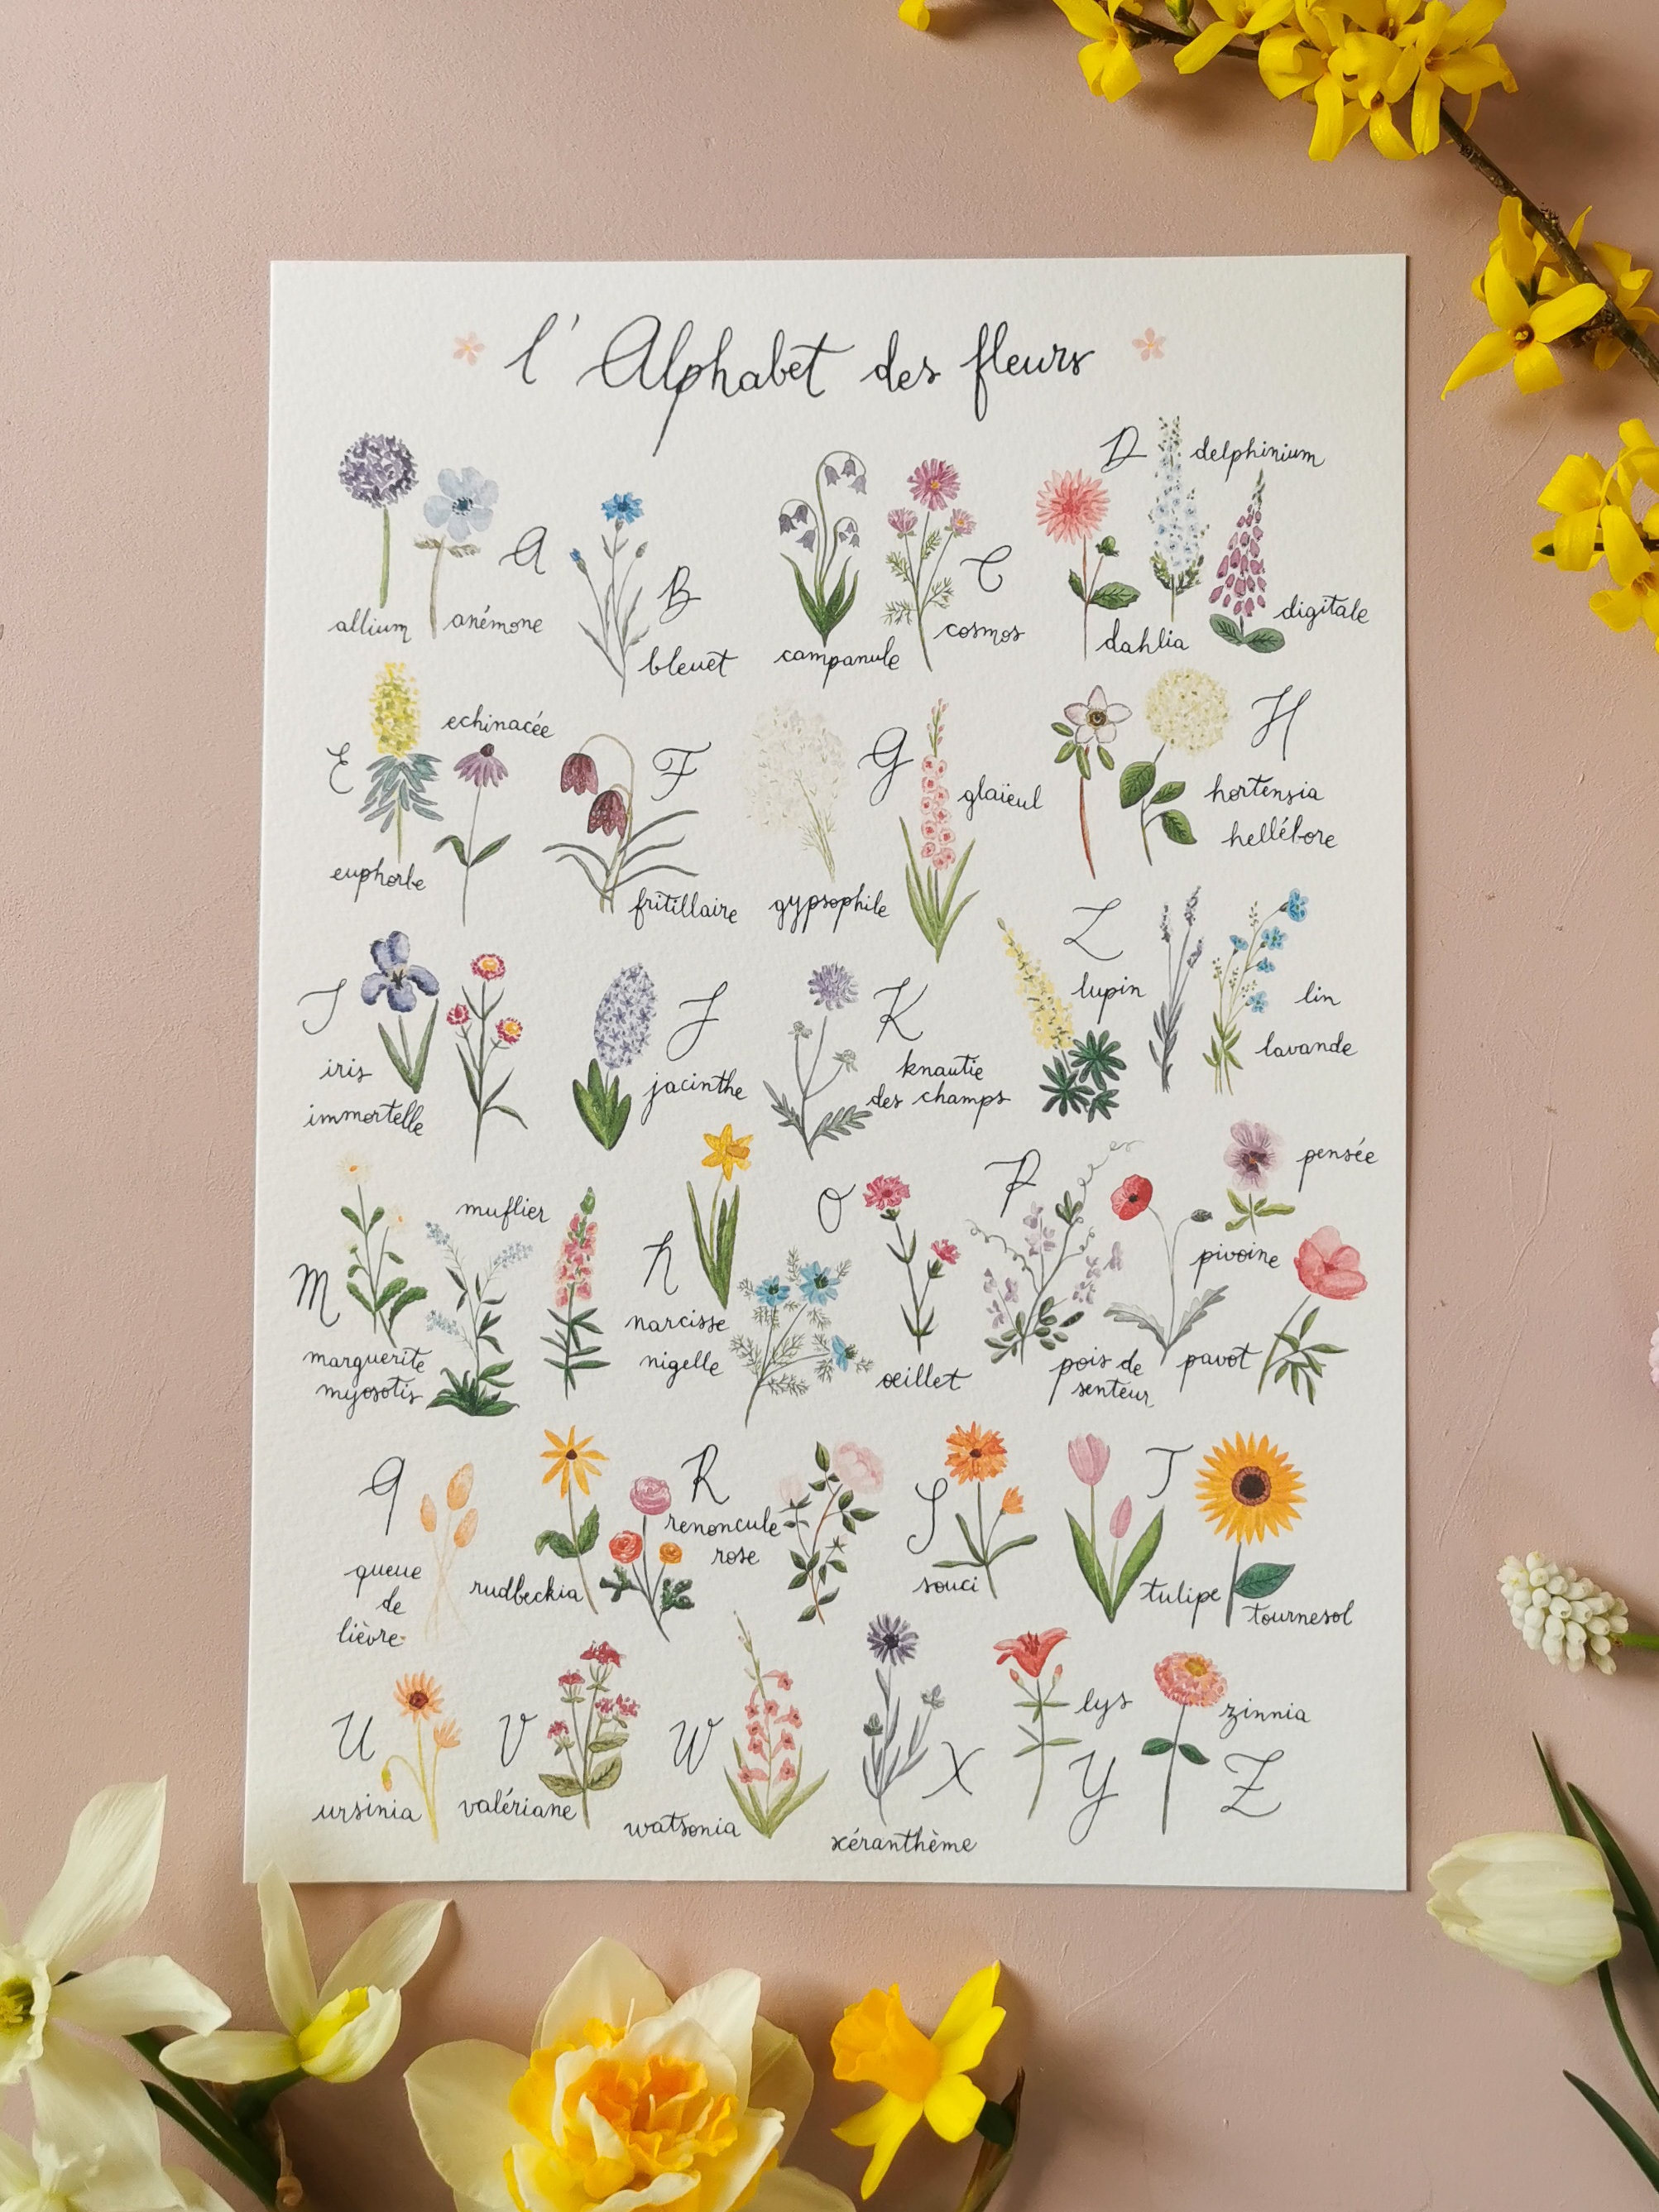 l'Alphabet des fleurs
A
allium
anémone
B
bleuet
C
campanule
cosmos
D
delphinium
dahlia
digitale
E
echinacée
euphorbe
F
fritillaire
G
gypsophile
glaïeul
H
hortensia
hellébore
I
iris
immortelle
J
jacinthe
K
knautie
des champs
L
lupin
lin
lavande
M
muflier
marguerite
myosotis
N
narcisse
nigelle
O
œillet
P
pensée
pivoine
pois de
senteur
pavot
q
queue
de
lièvre
R
rudbeckia
renoncule
rose
S
souci
T
tulipe
tournesol
U
ursinia
V
valériane
W
watsonia
X
xéranthème
lys
Y
zinnia
Z